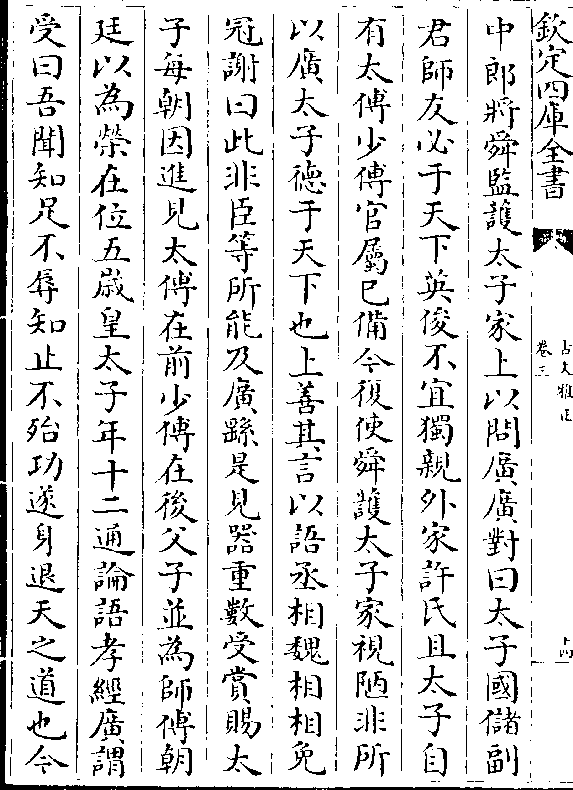 欽定四庫全書
古文雅正
卷三
十四
中郎將舜監護太子家上以問廣廣對曰太子國儲副
君師友必于天下英俊不宜獨親外家許氏且太子自
有太傅少傅官屬已備今復使舜護太子家視陋非所
以廣太子德于天下也上善其言以語丞相魏相相免
冠謝曰此非臣等所能及廣繇是見器重數受賞賜太
子每朝因進見太傅在前少傅在後父子並為師傅朝
廷以為榮在位五歲皇太子年十二通論語孝經廣謂
受曰吾聞知足不辱知止不殆功遂身退天之道也今